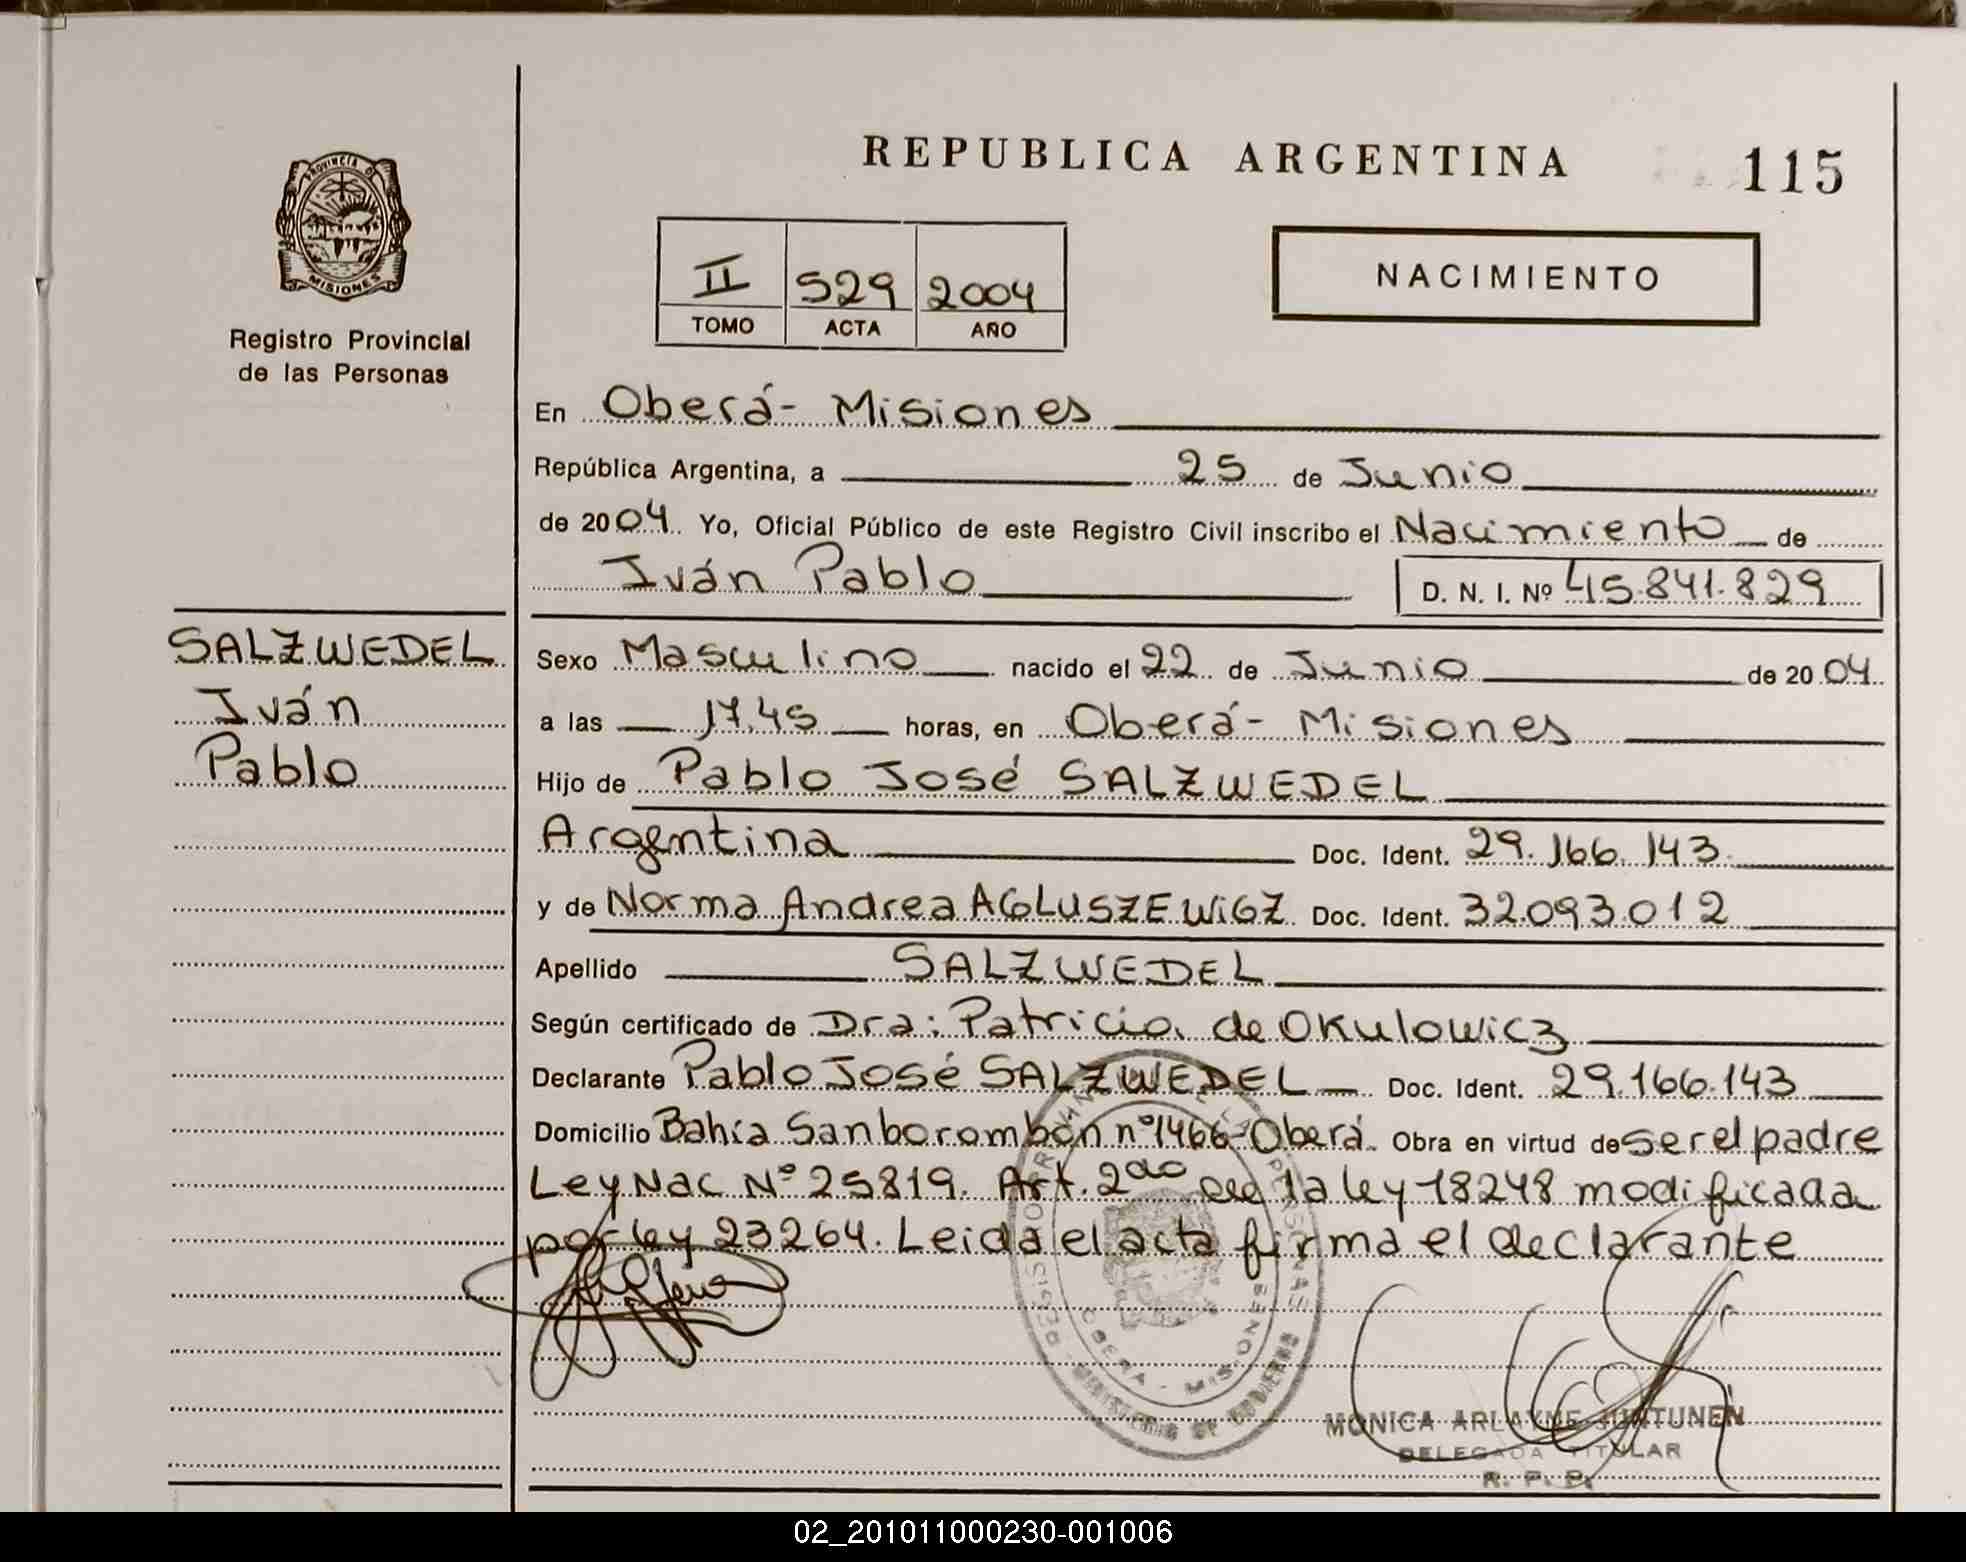 REPUBLICA ARGENTINA
115
PROVINCIA DE
MISIONES
Registro Provincial
de las Personas
II 529 2004
TOMO ACTA AÑO
NACIMIENTO
En Oberá - Misiones
República Argentina, a 25 de Junio
de 2004 Yo, Oficial Público de este Registro Civil inscribo el Nacimiento de
Iván Pablo D. N. I. Nº 45.841.829
SALZWEDEL
Iván
Pablo
Sexo Masculino nacido el 22 de Junio de 2004
a las 17,45 horas, en Oberá - Misiones
Hijo de Pablo José SALZWEDEL
Argentina Doc. Ident. 29.166.143
y de Norma Andrea Doc. Ident. 32.093.012
Apellido SALZWEDEL
Según certificado de Dra: Patricia de Okulowicz
Declarante Pablo José SALZWEDEL Doc. Ident. 29.166.143
Domicilio Bahía Sanborombón nº 1466 - Oberá. Obra en virtud de ser el padre
Ley Nac Nº 25819. Art. 2do de la ley 18248 modificada
por ley 23264. Leida el acta firma el declarante
OBERA - MISIONES
MINISTERIO DE GOBIERNO
MONICA ARLAYNE JUNTUNEN
DELEGADA TITULAR
R. P. P.
02_201011000230-001006